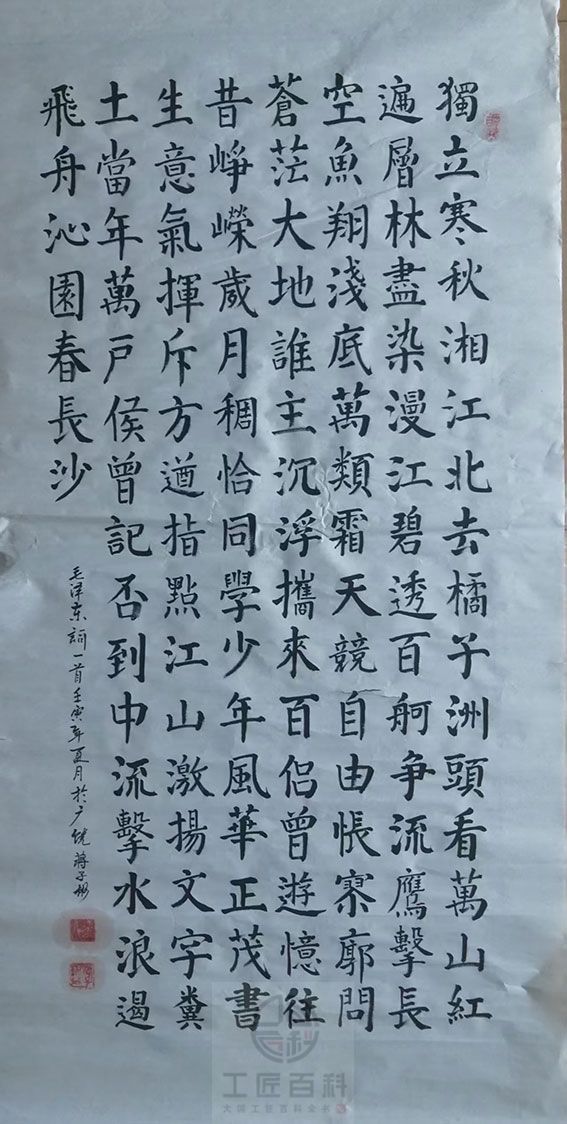 獨立寒秋湘江北去橘子洲頭看萬山紅
遍層林盡染漫江碧透百舸争流鷹擊長
空魚翔淺底萬類霜天競自由悵寥廓問
蒼茫大地誰主沉浮攜來百侣曾遊憶往
昔崢嶸歲月稠恰同學少年風華正茂書
生意氣揮斥方遒指點江山激揚文字糞
土當年萬户侯曾記否到中流擊水浪遏
飛舟沁園春長沙
毛泽东詞一首壬寅年夏月於广饶蒋子
工匠百科
大国工匠百科全书